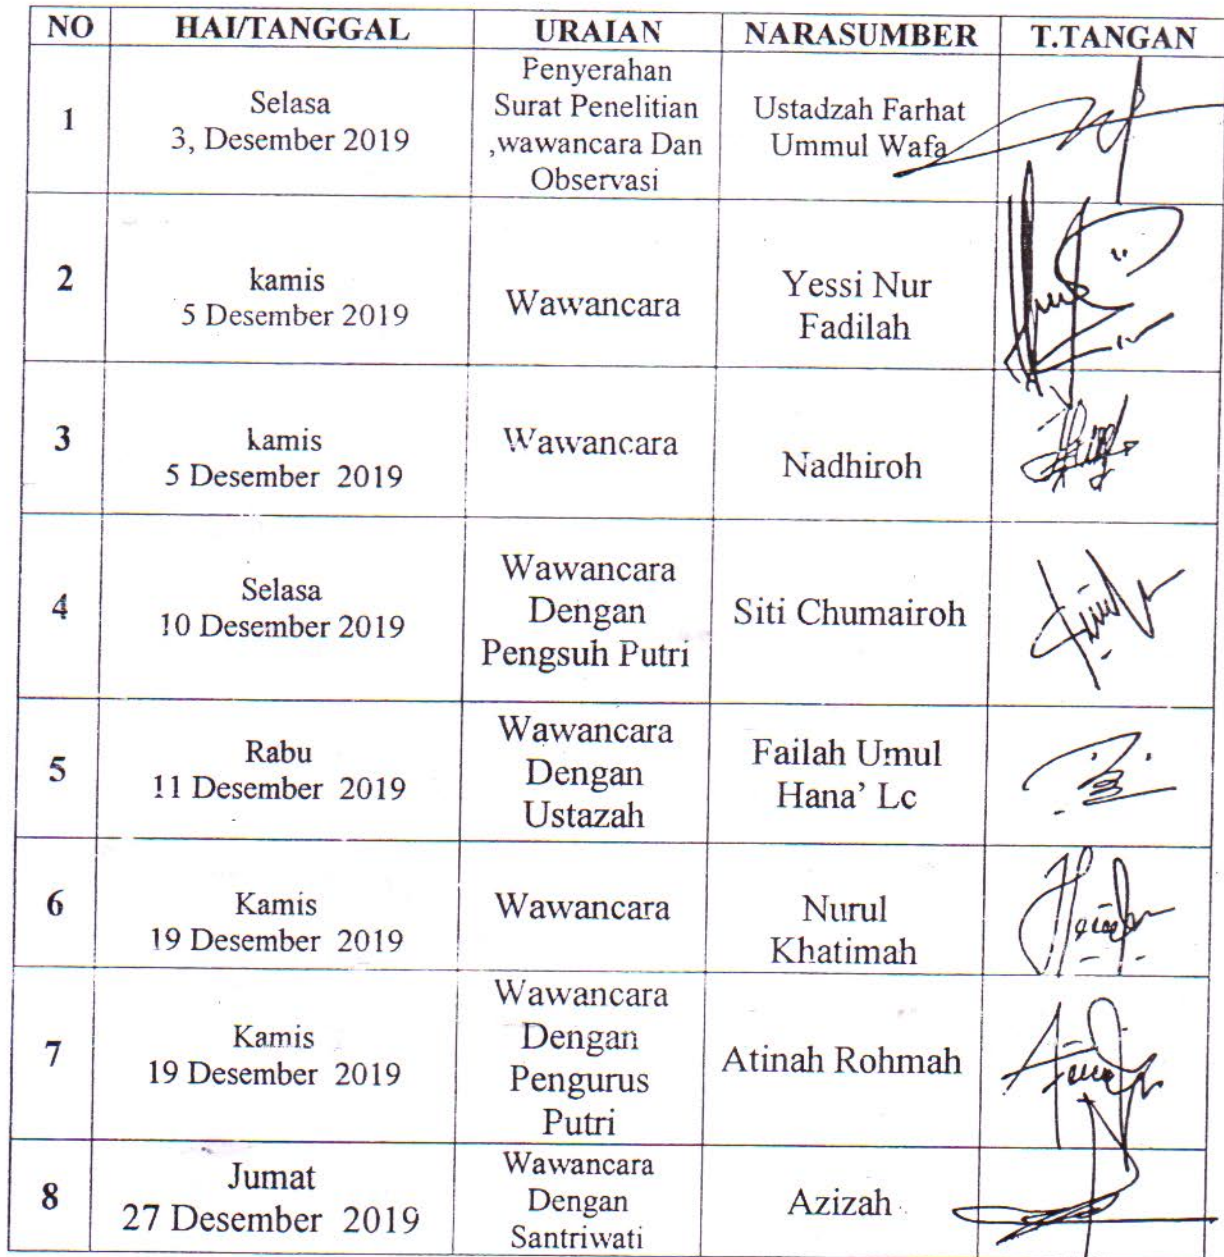 NO HAI/TANGGAL URAIAN NARASUMBER T.TANGAN
1
Selasa
3, Desember 2019
Penyerahan
Surat Penelitian
,wawancara Dan
Observasi
Ustadzah Farhat
Ummul Wafa
2
kamis
5 Desember 2019
Wawancara
Yessi Nur
Fadilah
3
kamis
5 Desember 2019
Wawancara
Nadhiroh
4
Selasa
10 Desember 2019
Wawancara
Dengan
Pengsuh Putri
Siti Chumairoh
5
Rabu
11 Desember 2019
Wawancara
Dengan
Ustazah
Failah Umul
Hana' Lc
6
Kamis
19 Desember 2019
Wawancara
Nurul
Khatimah
7
Kamis
19 Desember 2019
Wawancara
Dengan
Pengurus
Putri
Atinah Rohmah
8
Jumat
27 Desember 2019
Wawancara
Dengan
Santriwati
Azizah